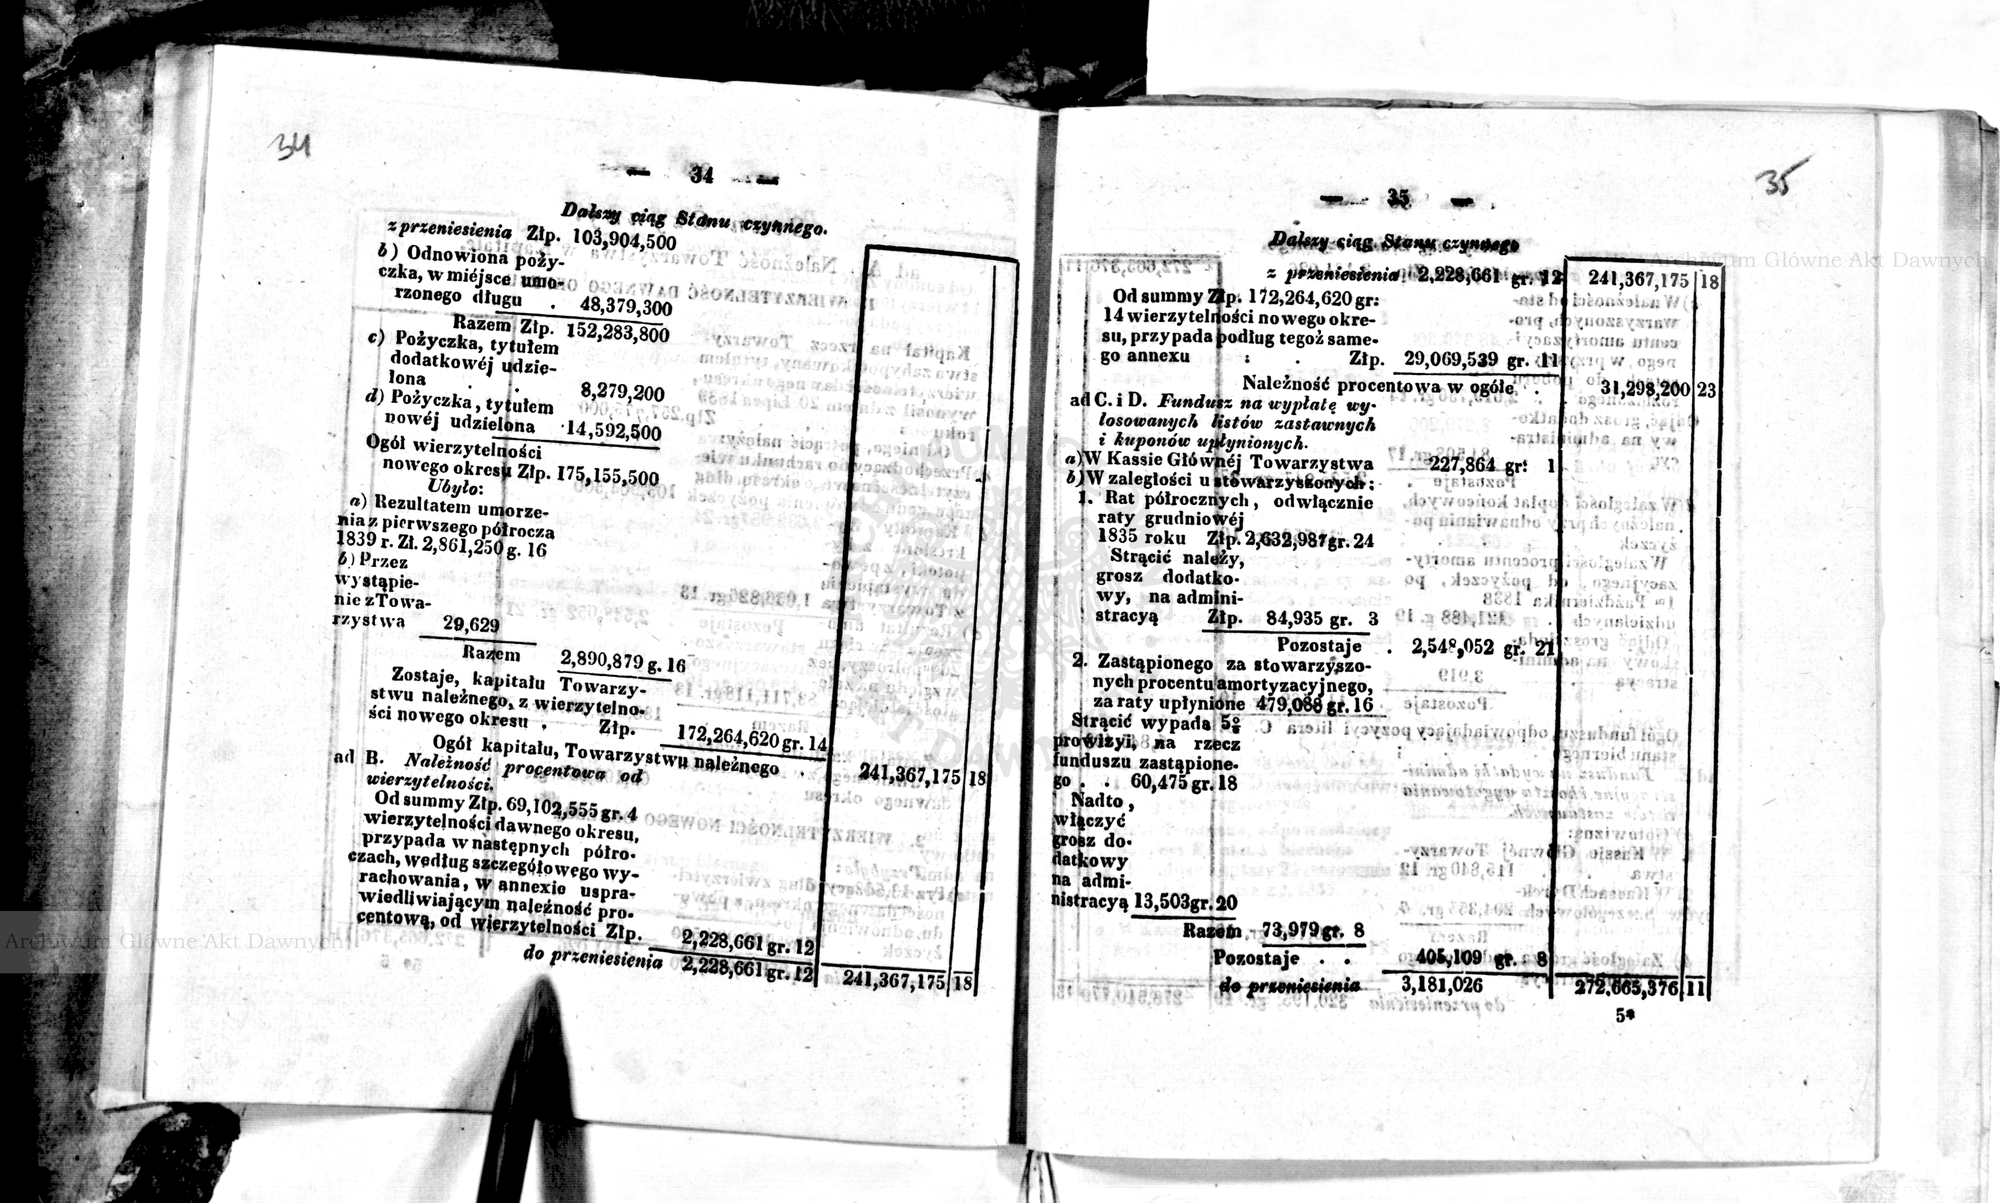 34
— 34 —
Dalszy ciąg Stanu czynnego.
z przeniesienia Złp. 103,904,500
b) Odnowiona poży-
czka, w miéjsce umo-
rzonego długu . 48,379,300
Razem Złp. 152,283,800
c) Pożyczka, tytułem
dodatkowéj udzie-
lona . . 8,279,200
d) Pożyczka, tytułem
nowéj udzielona . 14,592,500
Ogół wierzytelności
nowego okresu Złp. 175,155,500
Ubyło:
a) Rezultatem umorze-
nia z pierwszego półrocza
1839 r. Zł. 2,861,250 g. 16
b) Przez
wystąpie-
nie z Towa-
rzystwa 29,629
Razem 2,890,879 g. 16
Zostaje, kapitału Towarzy-
stwu należnego, z wierzytelno-
ści nowego okresu . Złp. 172,264,620 gr. 14
Ogół kapitału, Towarzystwu należnego . 241,367,175 18
ad B. Należność procentowa od
wierzytelności.
Od summy Złp. 69,102,555 gr. 4
wierzytelności dawnego okresu,
przypada w następnych półro-
czach, według szczegółowego wy-
rachowania, w annexie uspra-
wiedliwiającym należność pro-
centową, od wierzytelności Złp. 2,228,661 gr. 12
do przeniesienia 2,228,661 gr. 12 241,367,175 18
35
— 35 —
Dalszy ciąg Stanu czynnego
z przeniesienia 2,228,661 gr. 12 241,367,175 18
Od summy Złp. 172,264,620 gr:
14 wierzytelności nowego okre-
su, przypada podług tegoż same-
go annexu : . Złp. 29,069,539 gr. 11
Należność procentowa w ogóle . . 31,298,200 23
ad C. i D. Fundusz na wypłatę wy-
losowanych listów zastawnych
i kuponów upłynionych.
a) W Kassie Głównéj Towarzystwa 227,864 gr: 1
b) W zaległości u stowarzyszonych:
1. Rat półrocznych, odwłącznie
raty grudniowéj
1835 roku Złp. 2,632,987 gr. 24
Strącić należy,
grosz dodatko-
wy, na admini-
stracyą Złp. 84,935 gr. 3
Pozostaje . 2,548,052 gr. 21
2. Zastąpionego za stowarzyszo-
nych procentu amortyzacyjnego,
za raty upłynione 479,088 gr. 16
Strącić wypada 5%
prowizyi, na rzecz
funduszu zastąpione-
go . . 60,475 gr. 18
Nadto,
włączyć
grosz do-
datkowy
na admi-
nistracyą 13,503 gr. 20
Razem 73,979 gr. 8
Pozostaje . . 405,109 gr. 8
do przeniesienia 3,181,026 272,665,376 11
5*
Archiwum Główne Akt Dawnych
Archiwum Główne Akt Dawnych